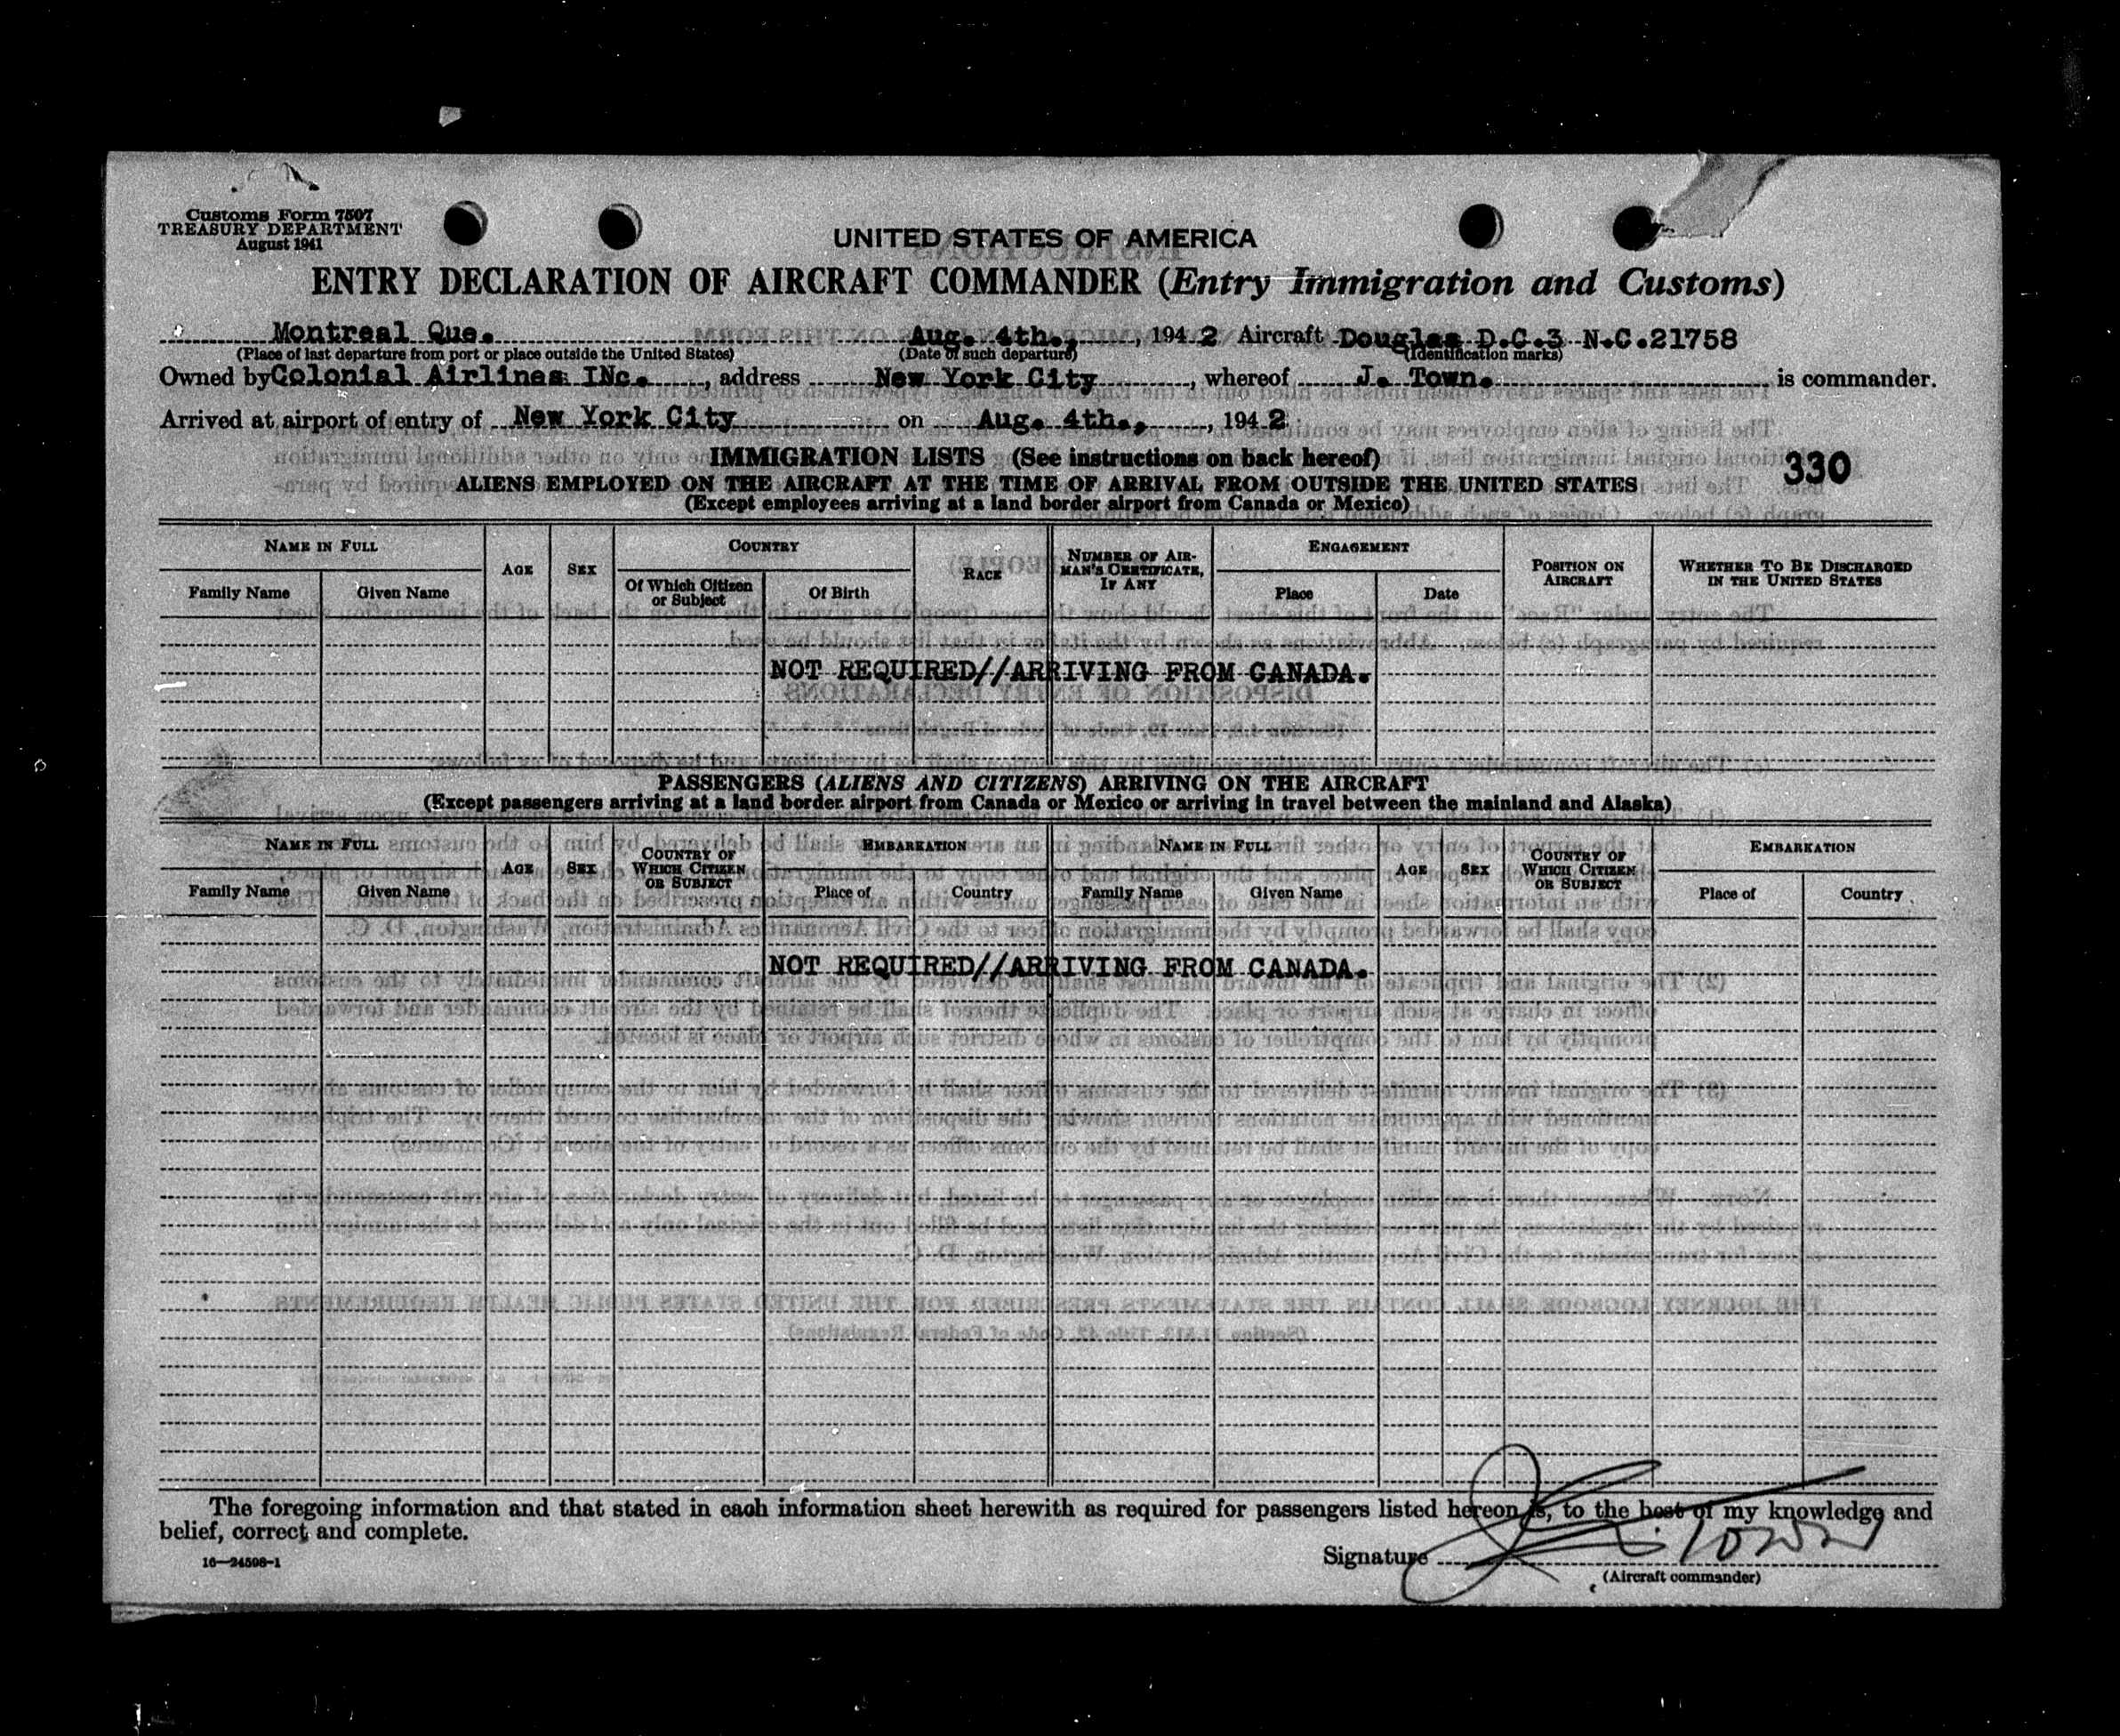 Customs Form 7507
TREASURY DEPARTMENT
August 1941
UNITED STATES OF AMERICA
ENTRY DECLARATION OF AIRCRAFT COMMANDER (Entry Immigration and Customs)
Montreal Que. Aug. 4th., 1942 Aircraft Douglas D.C.3 N.C.21758
(Place of last departure from port or place outside the United States) (Date of such departure) (Identification marks)
Owned by Colonial Airlines INc. , address New York City , whereof J. Town. is commander.
Arrived at airport of entry of New York City on Aug. 4th., , 1942
IMMIGRATION LISTS (See instructions on back hereof)
330
ALIENS EMPLOYED ON THE AIRCRAFT AT THE TIME OF ARRIVAL FROM OUTSIDE THE UNITED STATES
(Except employees arriving at a land border airport from Canada or Mexico)
NAME IN FULL AGE SEX COUNTRY RACE NUMBER OF AIRMAN'S CERTIFICATE, IF ANY ENGAGEMENT POSITION ON AIRCRAFT WHETHER TO BE DISCHARGED IN THE UNITED STATES
Family Name Given Name Of Which Citizen or Subject Of Birth Place Date
NOT REQUIRED//ARRIVING FROM CANADA.
PASSENGERS (ALIENS AND CITIZENS) ARRIVING ON THE AIRCRAFT
(Except passengers arriving at a land border airport from Canada or Mexico or arriving in travel between the mainland and Alaska)
NAME IN FULL AGE SEX COUNTRY OF WHICH CITIZEN OR SUBJECT EMBARKATION NAME IN FULL AGE SEX COUNTRY OF WHICH CITIZEN OR SUBJECT EMBARKATION
Family Name Given Name Place of Country Family Name Given Name Place of Country
NOT REQUIRED//ARRIVING FROM CANADA.
The foregoing information and that stated in each information sheet herewith as required for passengers listed hereon is, to the best of my knowledge and
belief, correct and complete.
16—24598-1
Signature J. Town
(Aircraft commander)